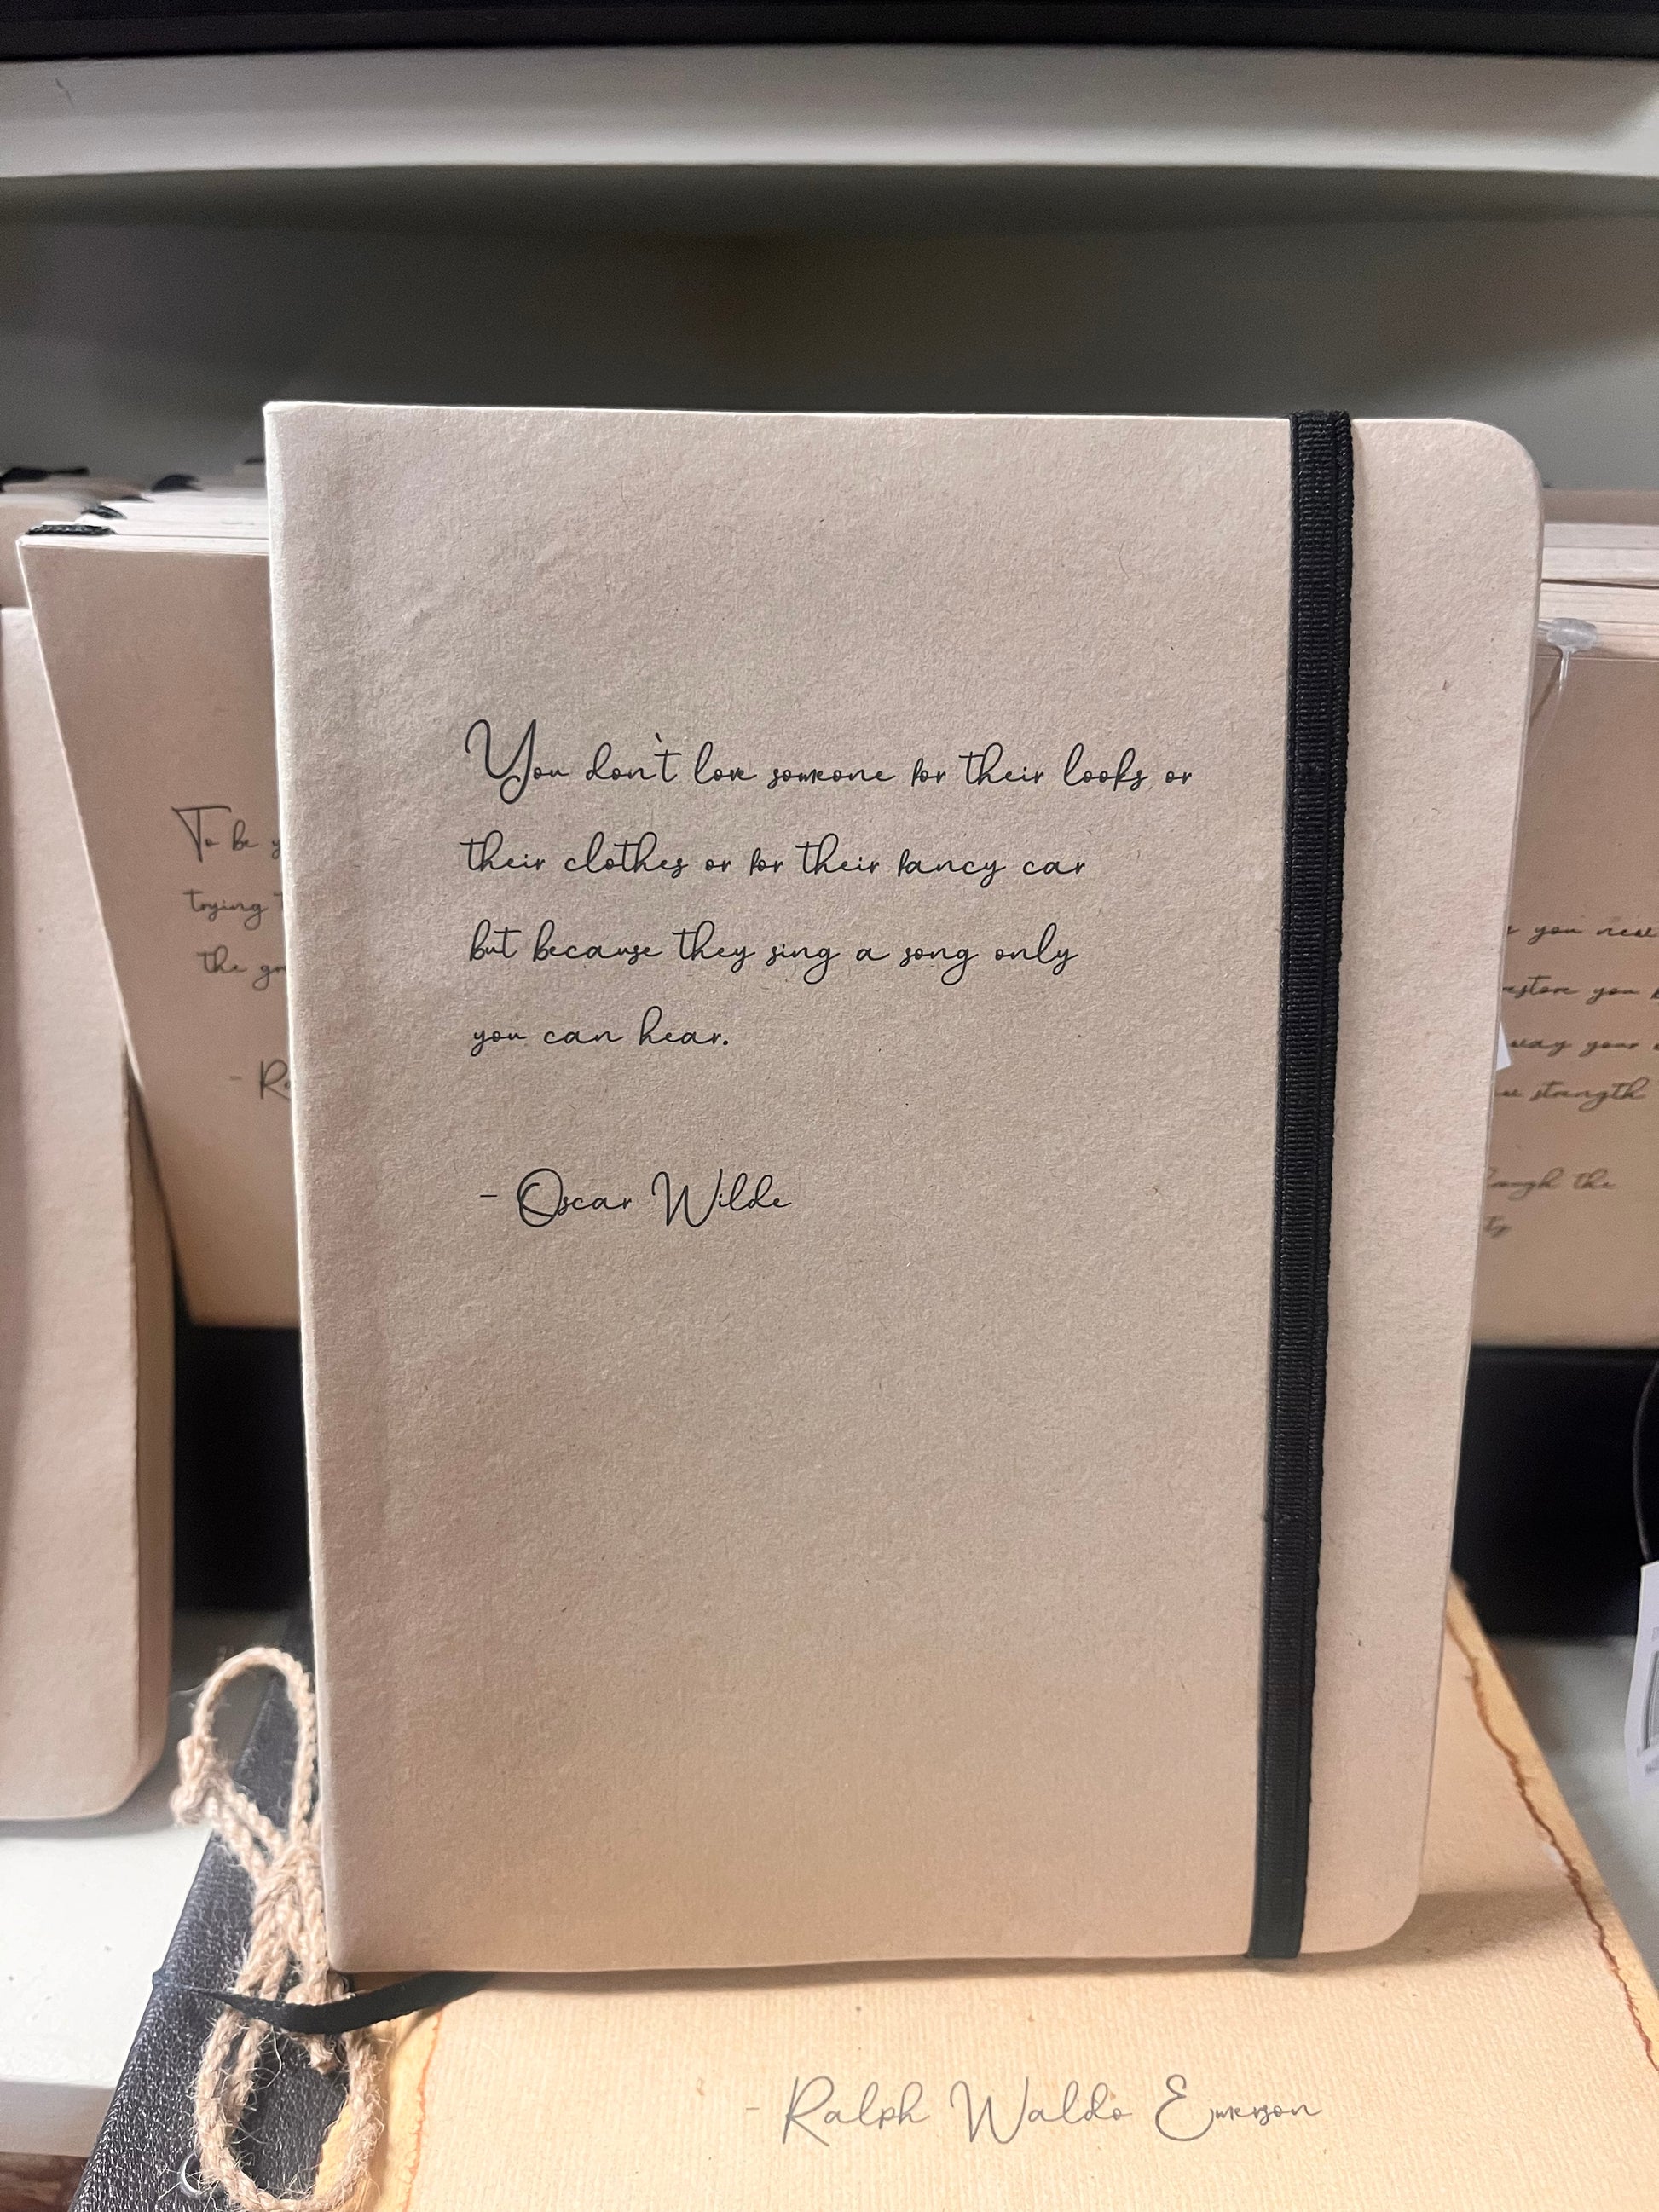 You don't love someone for their looks or
their clothes or for their fancy car
but because they sing a song only
you can hear.
- Oscar Wilde
To be
trying
the
you
restore you
way your
strength
the
- Ralph Waldo Emerson